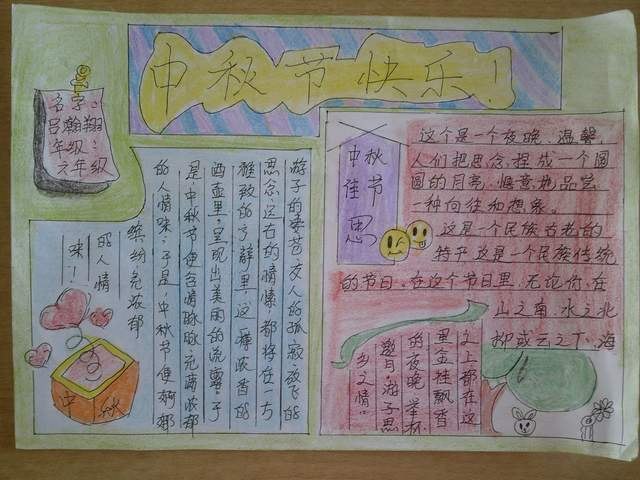 中秋节快乐！
名字：
吕瀚翔
年级：
六年级
中秋
佳节
思
这个是一个夜晚，温馨，
人们把思念，捏成一个圆
圆的月亮，惬意地品尝
一种向往和想象。
这是一个民族古老的
这是一个民族传统
的节日。在这个节日里，无论你，在
山之南，水之北
抑或云之下，海
之上都在这
里金桂飘香
的夜晚，举杯
邀月，游子思
乡之情：
游子的苍友人的孤寂放飞的
思念，远古的情愫，都将在一方
雅致的方辞里，这一浓香的
酒壶里，呈现出美丽的流露。于
是，中秋节便含情脉脉充满浓郁
的人情味。于是，中秋节便
缤纷多浓郁
的人情
味！
中 秋